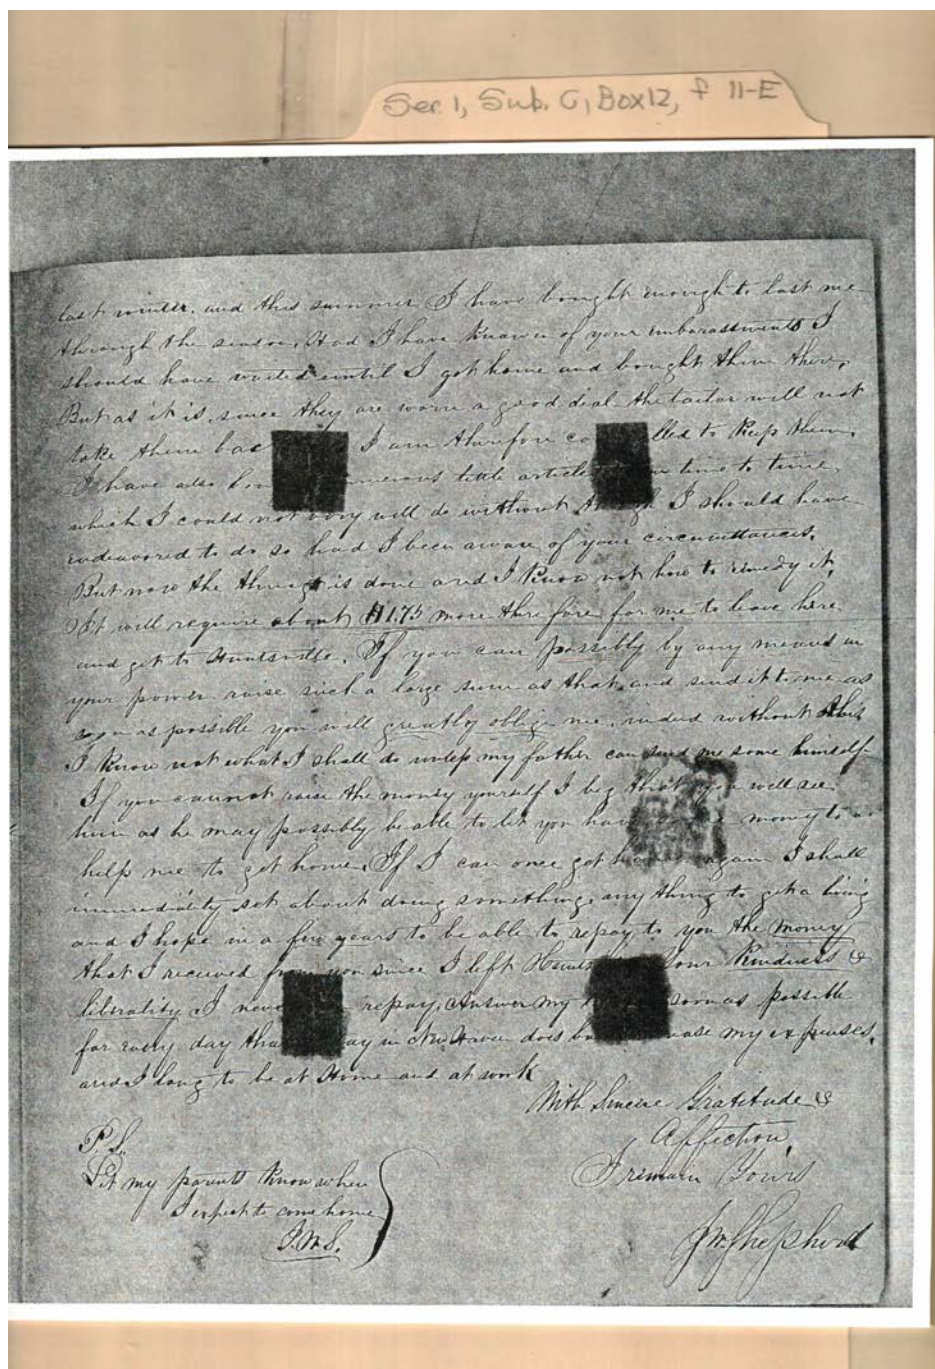 Ser. 1, Sub. C, Box 12, f 11-E
last winter, and this summer I have bought enough to last me
through the season. Had I have known of your embarassments I
should have waited until I got home and bought them there,
But as it is, since they are worn a good deal the tailor will not
take them bac I am therefore co lled to keep them.
I have also bo merous little article time to time
which I could not very well do without though I should have
endeavored to do so had I been aware of your circumstances.
But now the thing is done and I know not how to remedy it,
It will require about $175 more therefore for me to leave here
and get to Huntsville. If you can possibly by any means in
your power raise such a large sum as that and send it to me as
soon as possible you will greatly oblige me, indeed without this
I know not what I shall do unless my father can send me some himself
If you cannot raise the money yourself I beg that you will see
him as he may possibly be able to let you have money to
help me to get home. If I can once get again I shall
immediately set about doing something, any thing to get a living
and I hope in a few years to be able to repay to you the money
that I received from you since I left Hunts our Kindness &
liberality I nev repay. Answer my soon as possible
for every day tha ay in New Haven does b ease my expenses,
and I long to be at Home and at work
With Sincere Gratitude &
Affection,
I remain Yours
J W Shepherd
P.S.
Let my parents know when
I expect to come home
J.W.S.